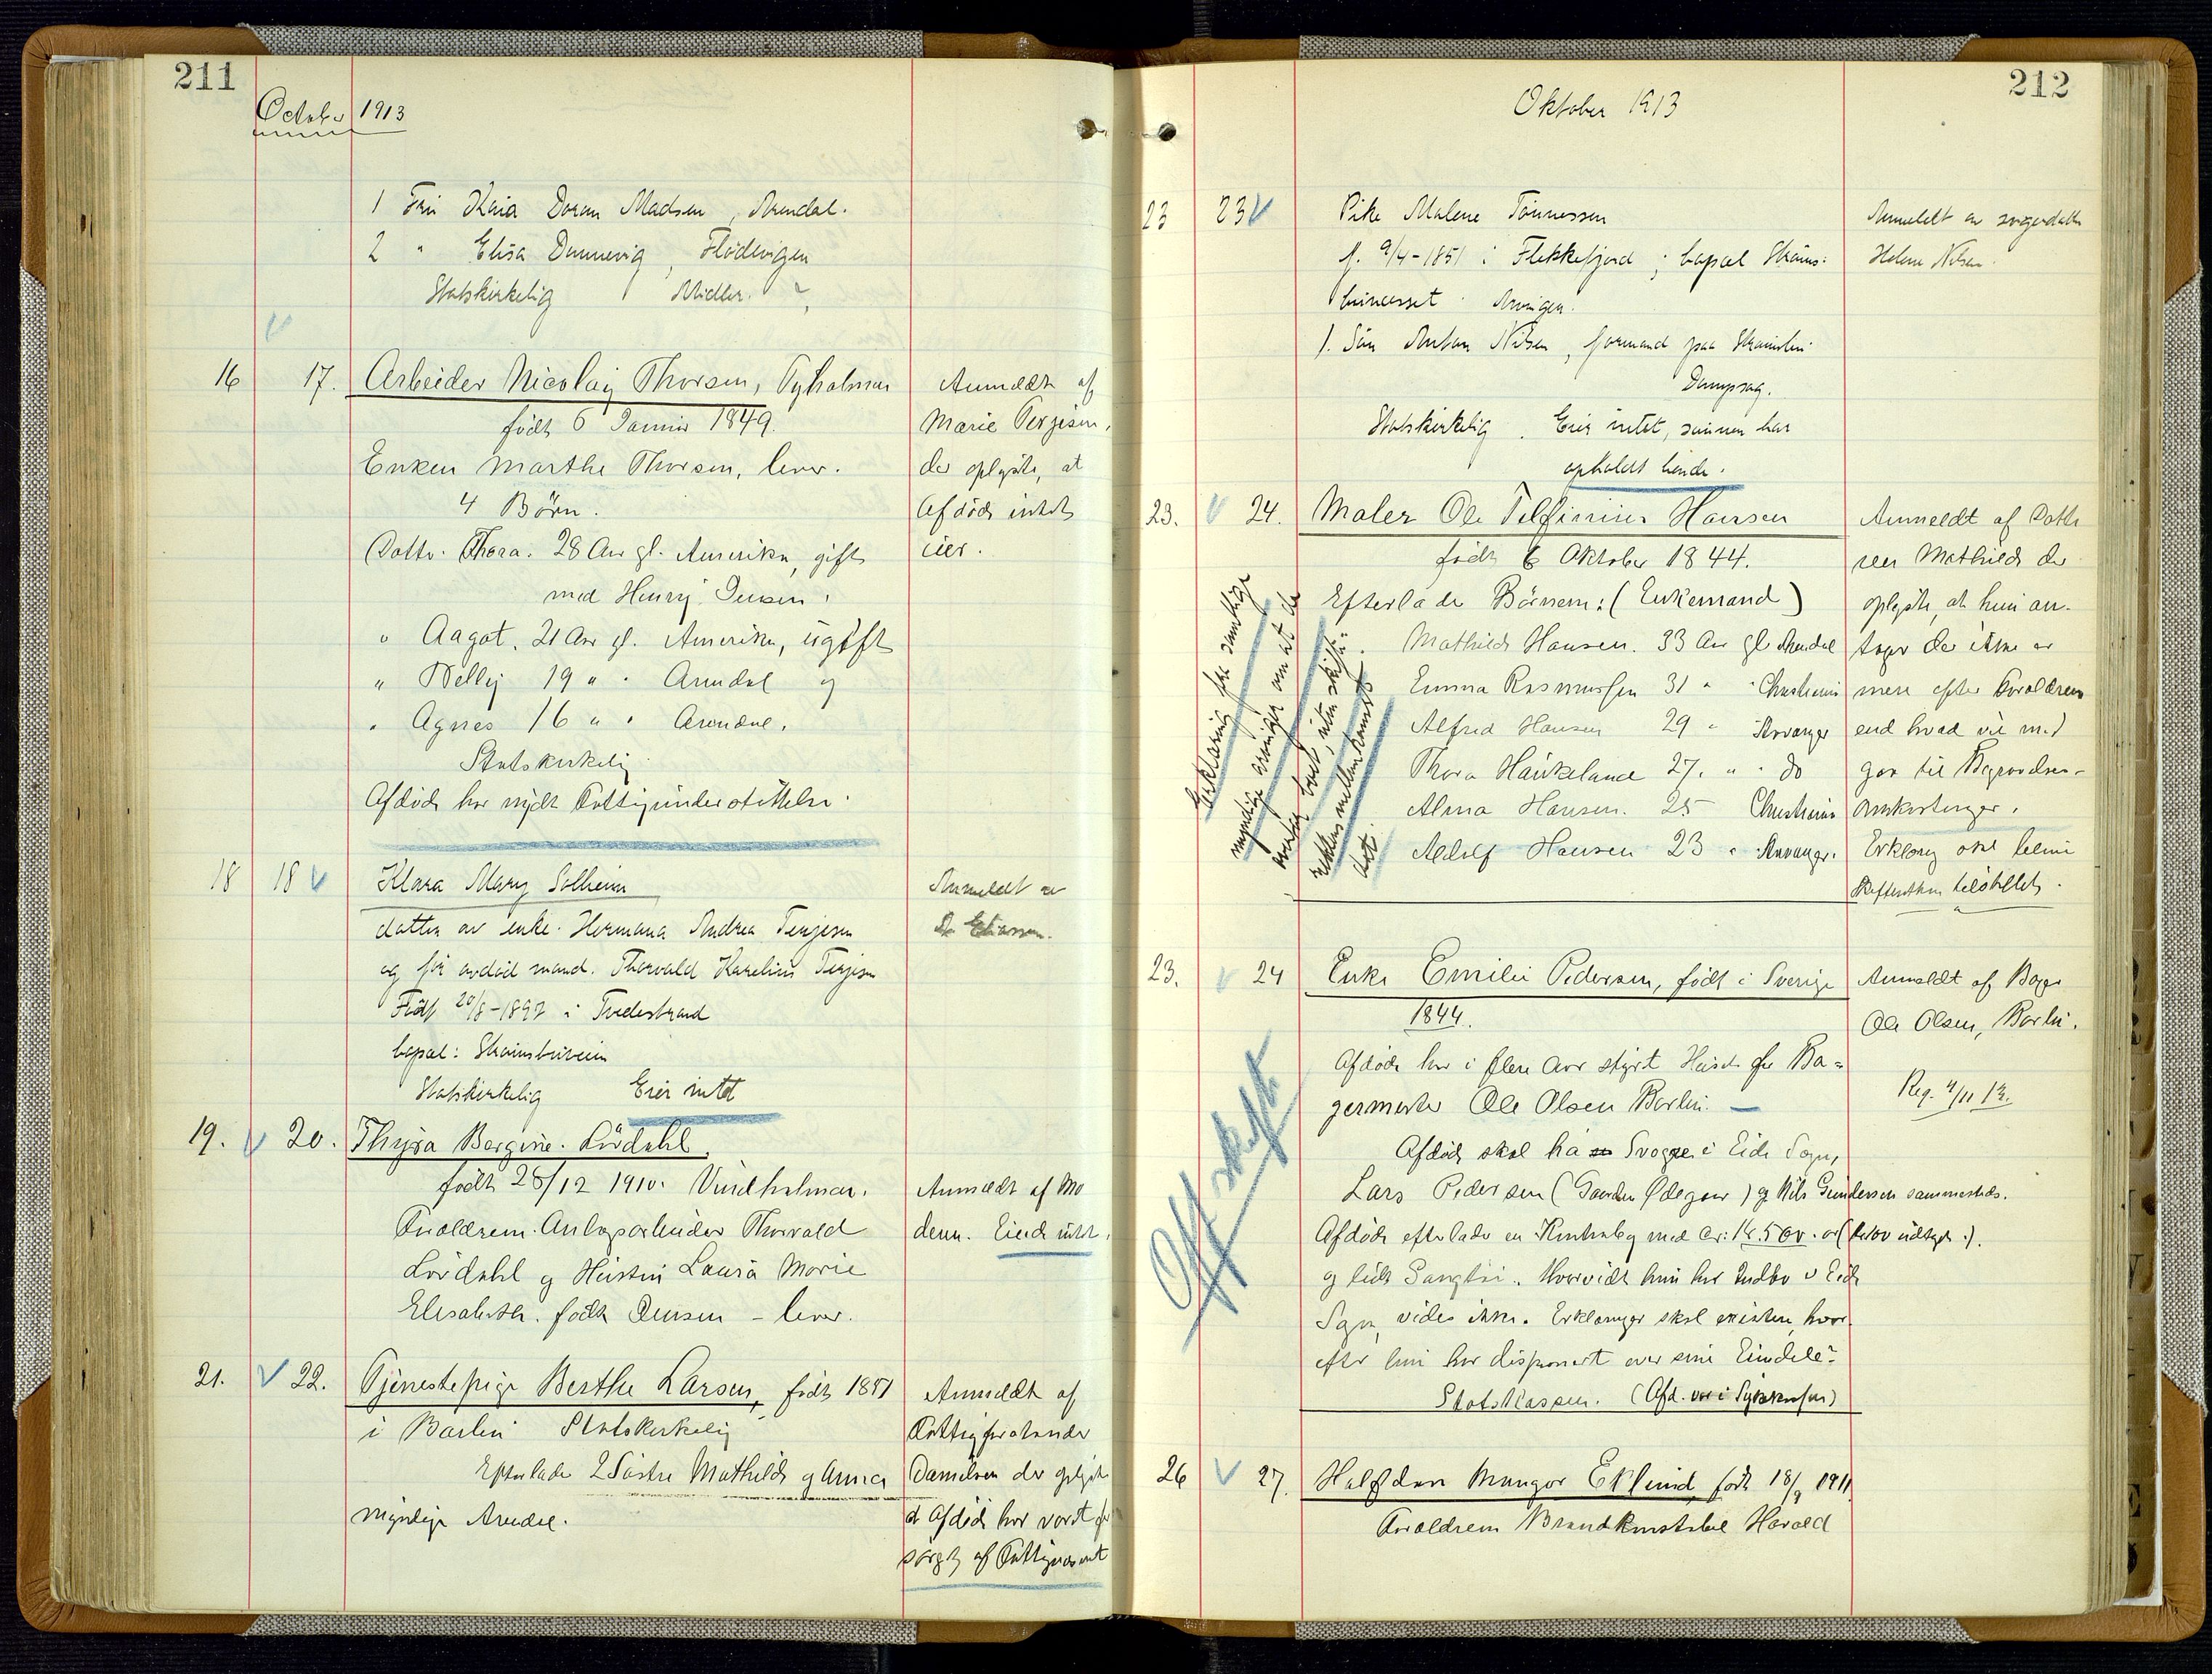 211
October 1913
1 Fru Kaia Doran Madsen, Arendal.
2 " Elisa Dannevig, Flödevigen
Statskirkelig Midler ?
16 17. Arbeider Nicolay Thorsen, Tyholmen
född 6 Januar 1849.
Enken Marthe Thorsen, lever.
4 Börn.
Datter Thora. 28 Aar gl. Amerika, gift
med Henry Jensen.
" Aagot. 21 Aar gl. Amerika, ugift
" Nelly 19 " " Arendal og
" Agnes 16 " " Arendal.
Statskirkelig
Afdöde har nydt Fattigunderstöttelse.
Anmeldt af
Marie Terjesen,
der oplyste, at
Afdöde intet
eier.
18 18 Klara Mary Solheim
datter av enke Hermana Andrea Terjesen
og för avdöd mand. Thorvald Karelius Terjesen
Född 20/8-1897 i Tvedestrand
bopæl: Strømsbuveien
Statskirkelig Eier intet
Anmeldt av
Dr Eliassen.
19. 20. Thyra Bergine Lördahl.
född 28/12 1910. Vindholmen.
Forældrene Anlægsarbeider Thorvald
Lördahl og Hustru Laura Marie
Elisabeth. född Jensen - lever.
Anmeldt af Mo
deren. Eiede intet.
21. 22. Tjenestepige Berthe Larsen, född 1851
i Barbu Statskirkelig
Efterlader 2 Söstre Mathilde og Anna
myndige Arendal.
Anmeldt af
Fattigforstander
Danielsen der oplyste
at Afdöde har været for
sörget af Fattigvæsenet
212
Oktober 1913
23 23 Pike Malene Tönnessen
f. 9/4-1851 i Flekkefjord; bopæl Ströms:
bunesset. Arvinger.
1. Sön Anton Nilsen, formand paa Strømsbu
Dampsag.
Statskirkelig. Eier intet, sönnen har
opholdt hende.
Anmeldt av svigerdatter
Helene Nilsen.
23. 24. Maler Ole Hansen
född 6 Oktober 1844.
Efterlader Börnene: (Enkemand)
Mathilde Hansen. 33 Aar gl Arendal
Emma Rasmussen 31 " " Christiania
Alfred Hansen 29 " Stavanger
Thora Haukeland 27. " " do
Alma Hansen. 25 Christiania
Adolf Hansen 23 " Stavanger.
Erklæring fra samtlige
myndige arvinger om at de
overtar boet, uten skifte-
rettens mellemkomst
Anmeldt af Datte
ren Mathilde der
oplyste, at hun an-
tager der ikke er
mere efter Forældrene
end hvad vil med
gaa til Begravelses-
omkostninger.
Erklæring skal blive
Skifteretten tilstillet.
23. 24 Enke Emilie Pedersen, född i Sverige
1844.
Afdöde har i flere Aar styrt Huset for Ba-
germester Ole Olsen Barbu. —
Afdöde skal ha Svogre i Eide Sogn,
Lars Pedersen (Gaarden Ødegaar) og Nils Gundersen sammesteds.
Afdöde efterlader en Kontrabog med Cr: 14.50 or
og lidt Gangtöi. Hvorvidt hun har Indbo i Eide
Sogn, vides ikke. Erklæringer skal existere hvor
efter hun har disponert over sine Eiendele.
Statskassen. (Afd. var i Sykekassen)
Off. skifte
Anmeldt af Bager
Ole Olsen, Barbu.
Reg. 4/11 13.
26 27. Halfdan Mangor Eklund född 18/9 1911
Forældrene Brandkonstabel Harald